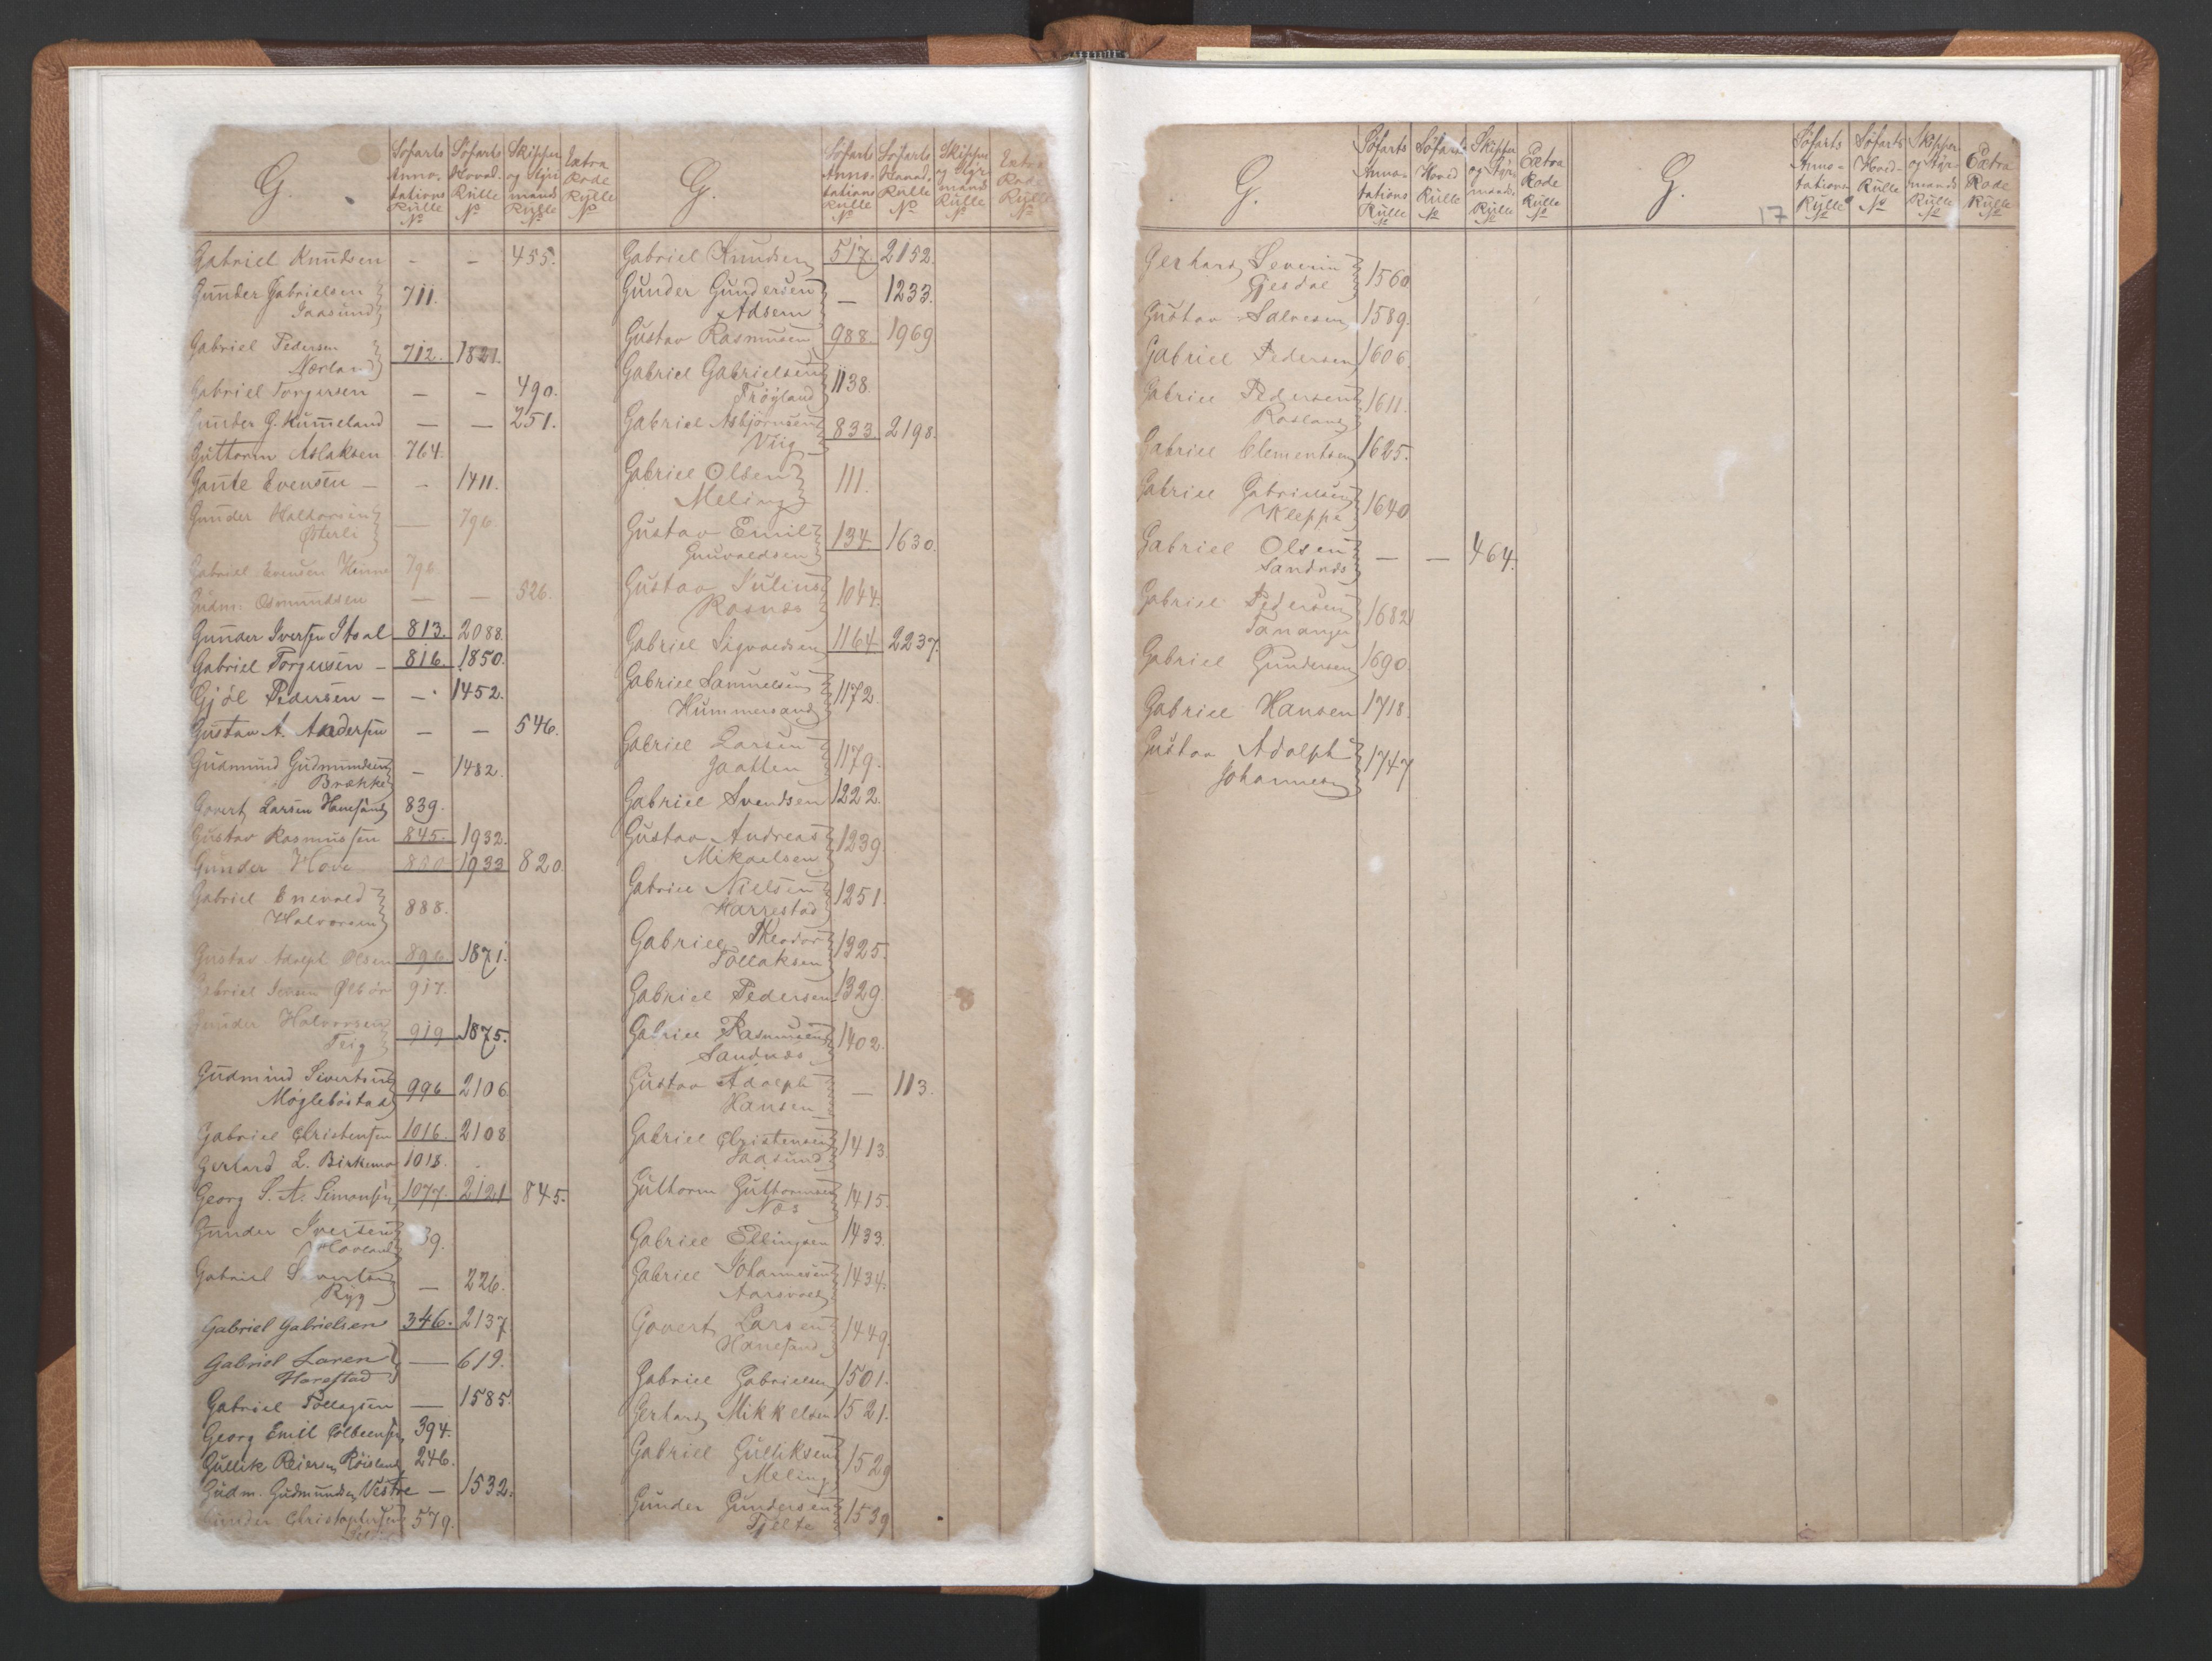 G.
Søfarts Anno- tations Rulle No
Søfarts Hoved- Rulle No
Skipper og Styr mands Rulle No
Extra Rode Rulle No
Gabriel Knudsen - - 455.
Gunder Gabrielsen
Jaasund 711.
Gabriel Pedersen
Nærland 712. 1821.
Gabriel Torgersen - - 490.
Gunder G. Hummeland - - 251.
Guttorm Aslaksen 764.
Gaute Evensen - - 1411.
Gunder Halvorsen
Østerli - 796
Gabriel Evensen Hinna 796
Gudm. Osmundsen - - 526.
Gunder Iversen Stoal 813. 2088.
Gabriel Torgersen - 816. 1850.
Gjøl Pedersen - - 1452.
Gustav A. Andersen - - 546.
Gudmund Gudmundsen
Brække - 1482.
Govert Larsen Hanesand 839.
Gustav Rasmussen 845. 1932.
Gunder Hove 850 1933 820.
Gabriel Enevald
Halvorsen 888.
Gustav Adolph Olsen 896 1871.
Gabriel Iversen Ølbør 917.
Gunder Halvorsen
Teig 919 1875.
Gudmund Sivertsen
Møglebostad 996 2106
Gabriel Christensen 1016. 2108
Gerhard L. Birkemo 1018.
Georg S. A. Simonsen 1077. 2121 845.
Gunder Ivertsen
Hovland 39.
Gabriel Sivertsen
Ryg - 226.
Gabriel Gabrielsen 346. 2137.
Gabriel Soren
Harestad - 619.
Gabriel Tollagsen - 1585.
Georg Emil Colbeensen 394.
Gullik Reiersen Røisland 246.
Gudm. Gudmundsen Vestre - 1532.
Gunder Christophersen 579.
G.
Søfarts Anno- tations Rulle No
Søfarts Hoved- Rulle No
Skipper og Styr mands Rulle No
Extra Rode Rulle No
Gabriel Knudsen 517. 2152.
Gunder Gundersen
Adsem - 1233.
Gustav Rasmussen 988. 1969
Gabriel Gabrielsen
Trøgland 1138.
Gabriel Asbjørnsen
Viig 833 2198.
Gabriel Olsen
Meling 111.
Gustav Emil
Gunvaldsen 134. 1630.
Gustav Julius
Rosnes 1044.
Gabriel Sigvaldsen 1164 2237.
Gabriel Samuelsen
Hummersand 1172.
Gabriel Larsen
Gaatten 1179.
Gabriel Svendsen 1222.
Gustav Andreas
Mikaelsen 1239.
Gabriel Nielsen
Harrestad 1251.
Gabriel Theodor
Tollaksen 1325.
Gabriel Pedersen 1329.
Gabriel Rasmussen
Sandnes 1402.
Gustav Adolph
Hansen - 113.
Gabriel Christensen
Jaasund 1413
Guttorm Guttormsen
Næs 1415.
Gabriel Ellingsen 1433.
Gabriel Johannesen
Aarsvold 1434.
Govert Larsen
Hanesand 1449.
Gabriel Gabrielsen 1501.
Gerhard Mikkelsen 1521.
Gabriel Gulliksen
Meling 1529
Gunder Gundersen
Tjelta 1539
G.
Søfarts Anno- tations Rulle No
Søfarts Hoved Rulle No
Skipper og Styr- mands Rulle No
Extra Rode Rulle No
Gerhard Severin
Gjesdal 1560.
Gustav Salvesen 1589.
Gabriel Pedersen 1606.
Gabriel Pedersen
Rosland 1611.
Gabriel Clementsen 1625.
Gabriel Gabrielsen
Kleppa 1640
Gabriel Olsen
Sandnes - - 464.
Gabriel Pedersen
Tananger 1682
Gabriel Gundersen 1690.
Gabriel Hansen 1718.
Gustav Adolph
Johannesen 1747
G.
17
Søfarts Anno- tations Rulle No
Søfarts Hoved- Rulle No
Skipper og Styr- mands Rulle No
Extra Rode Rulle No